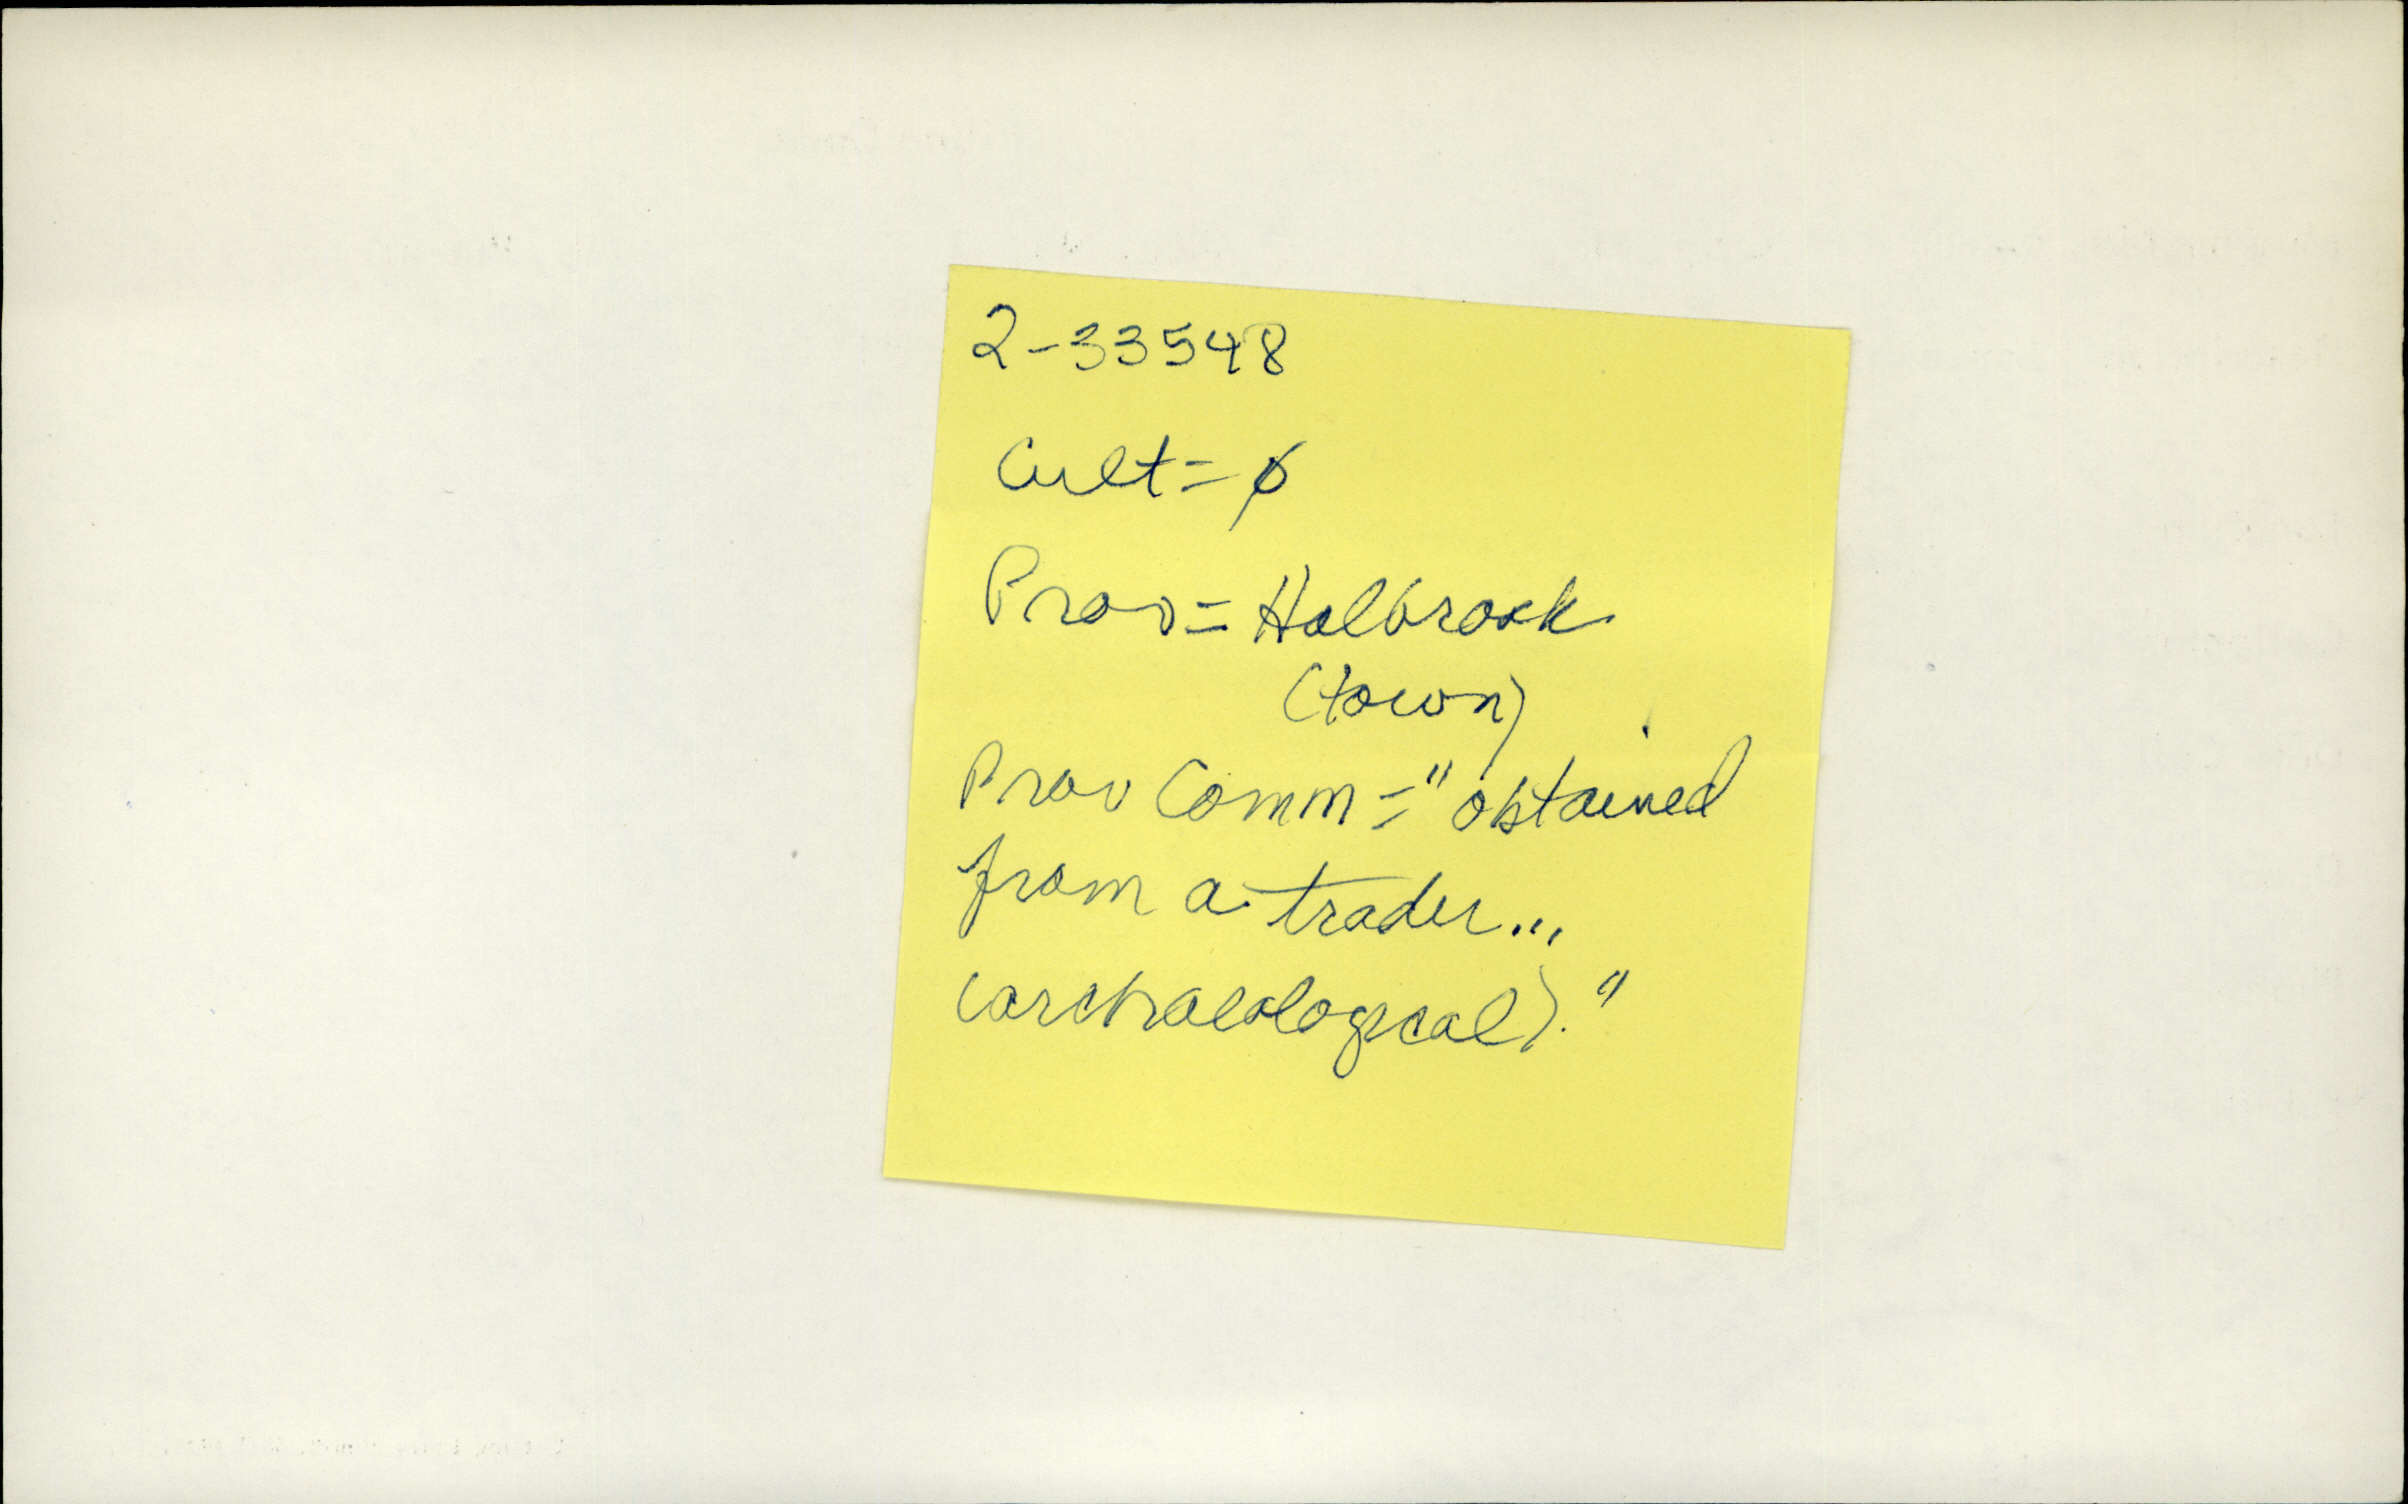 2-33548
Cult=ø
Prov=Holbrook
(town)
Prov Comm="obtained
from a trader...
(archaeological)."